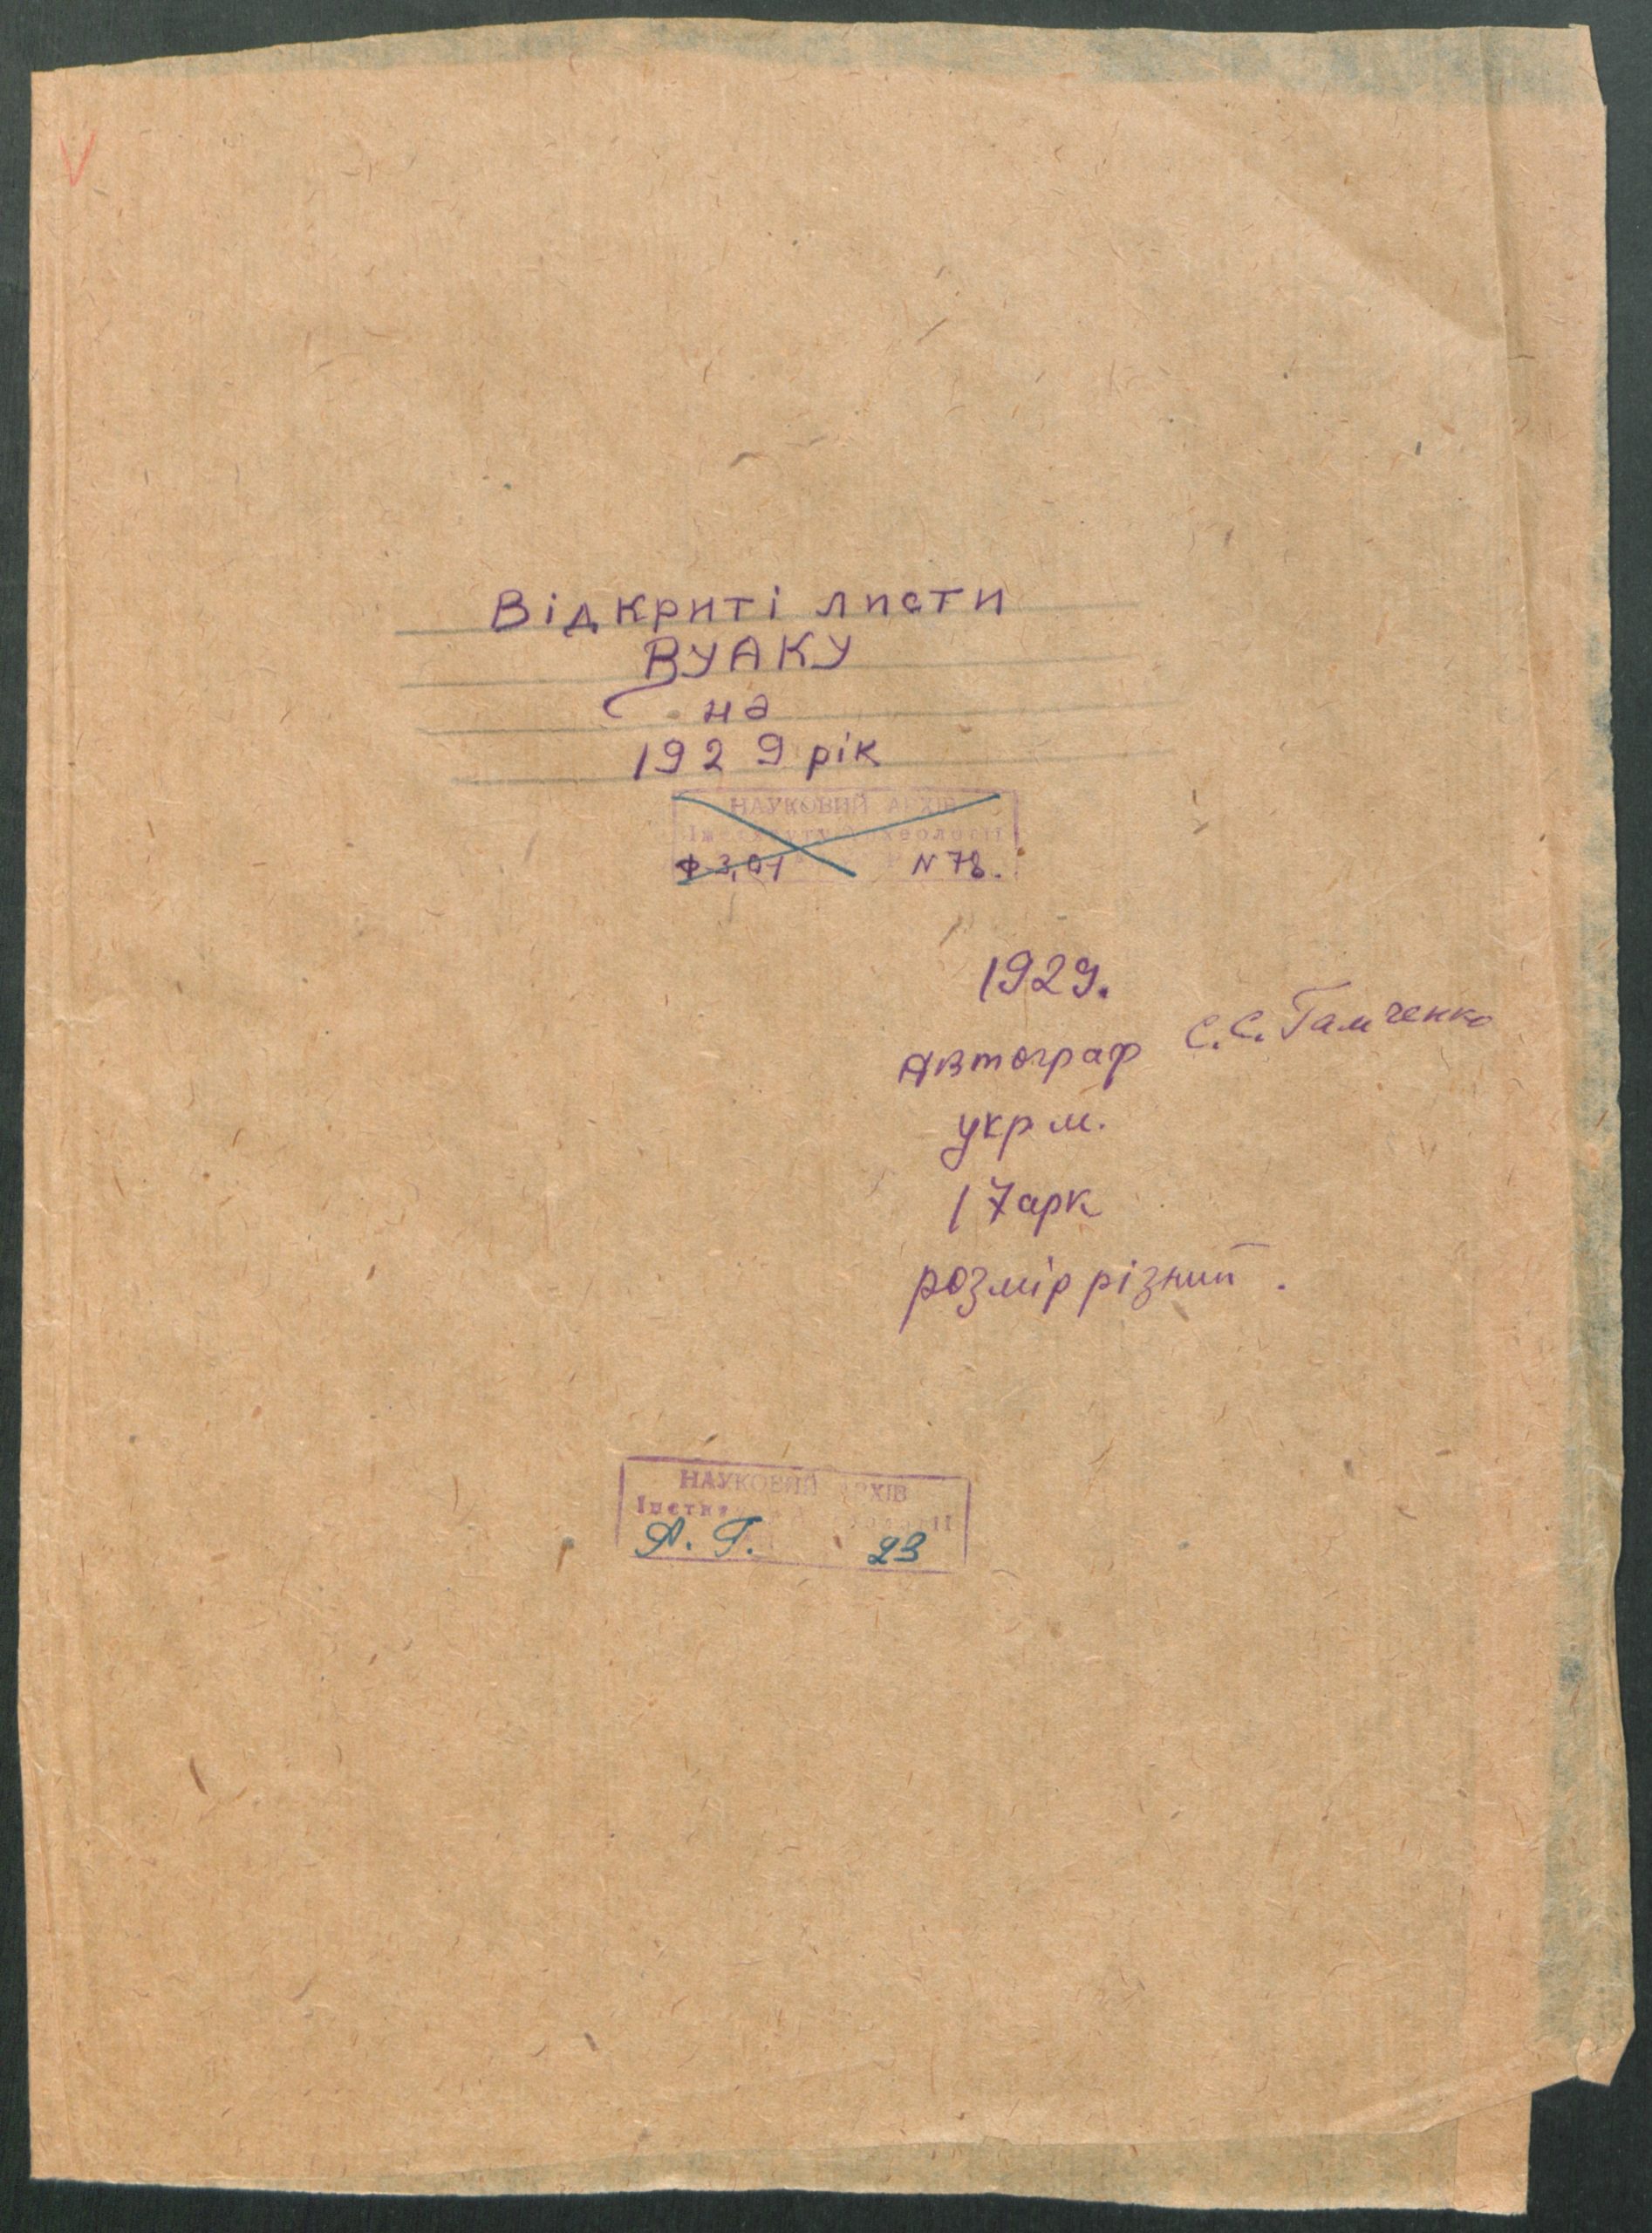 V
Відкриті листи
ВУАКУ
на
1929 рік
НАУКОВИЙ АРХІВ
Інституту Археології
Ф 3,01 N 78.
1929.
Автограф С.С. Гамченко
укр м.
17 арк
розмір різний.
НАУКОВИЙ АРХІВ
А. Г. 23